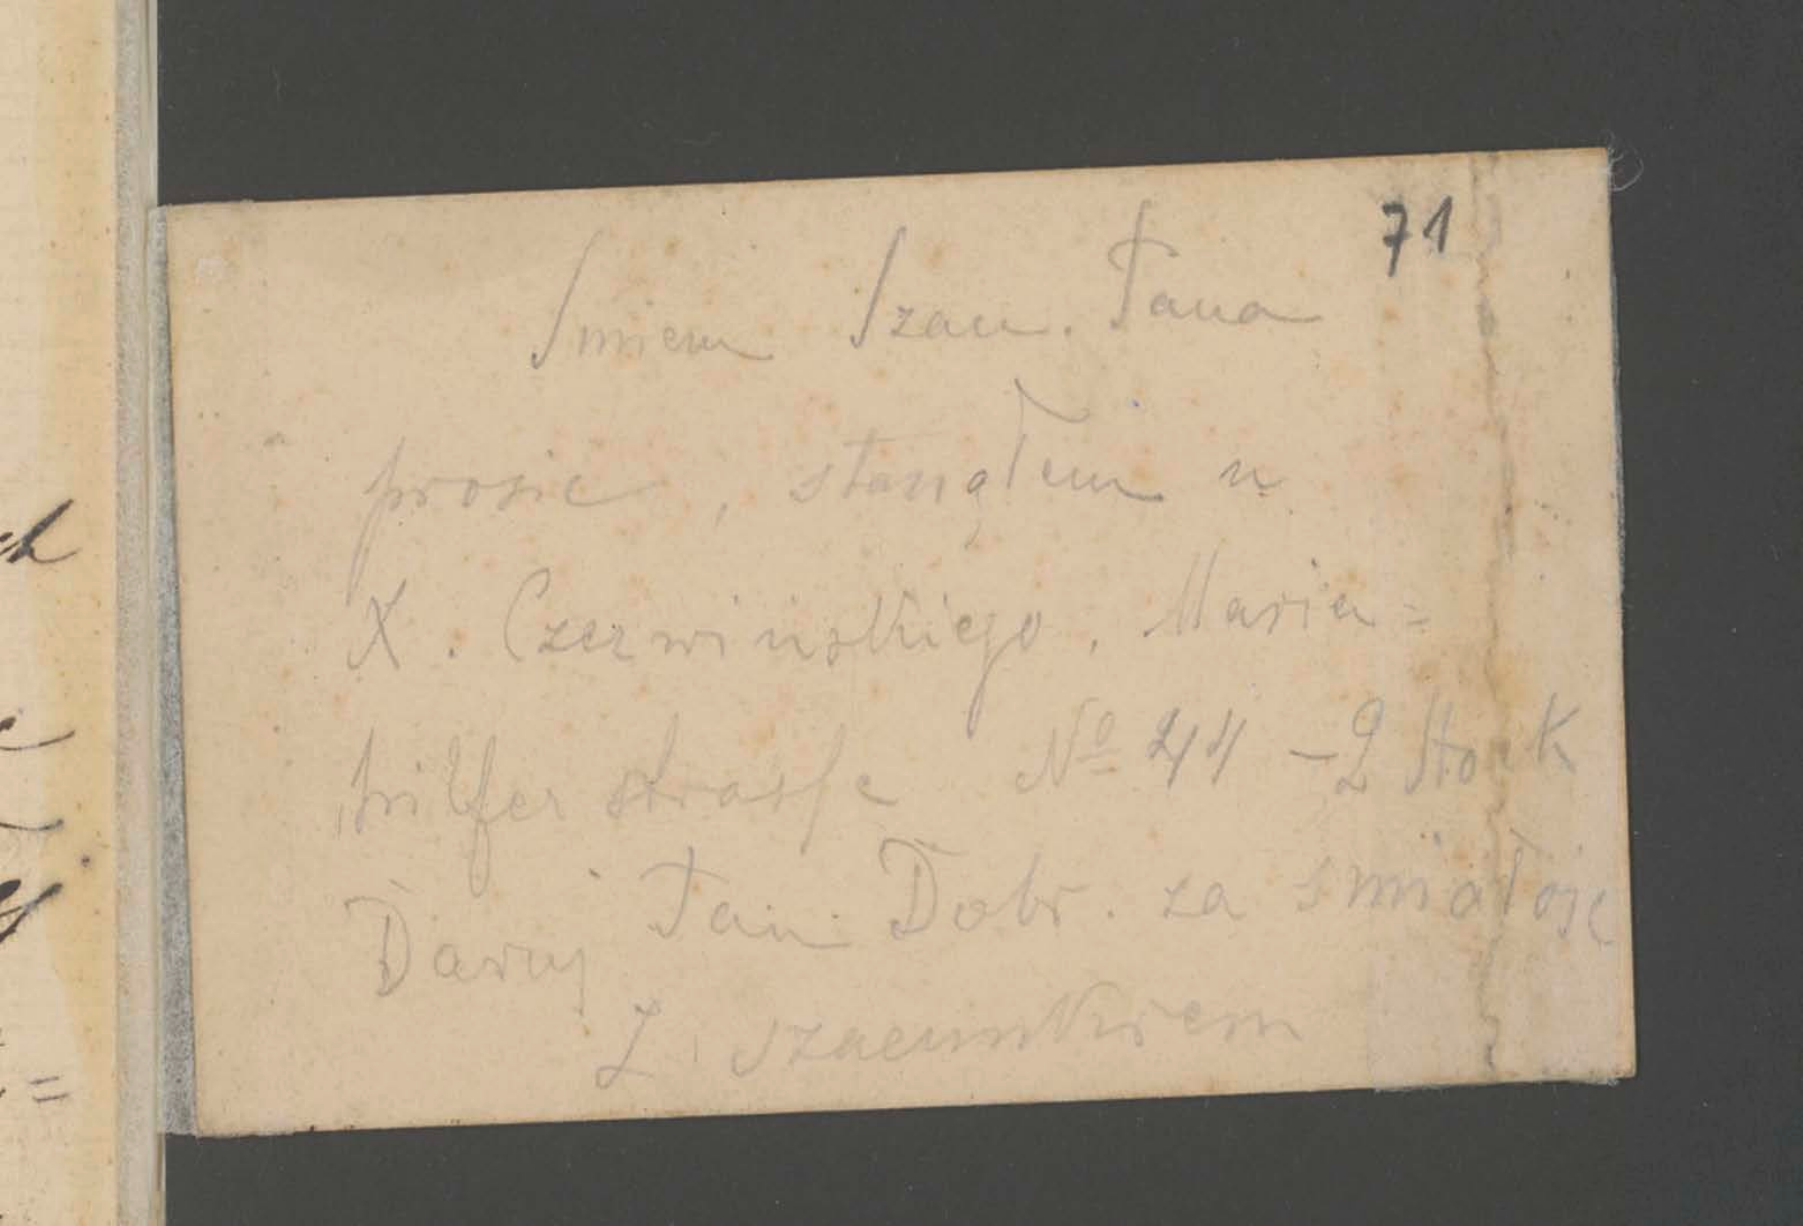 71
Smiem Szan. Pana
prosic, stanąłem u
X. Czerwińskiego. Marien=
hilferstrasse № 44 – 2 Stock
Daruj Pan Dobr. za smiałość
Z szacunkiem